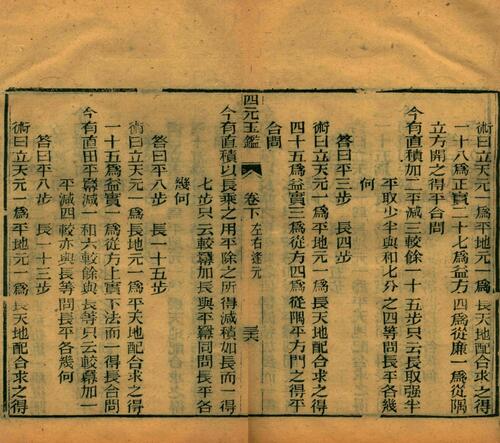 術曰立天元一爲平地元一爲長天地配合求之得
一十八爲正實二十七爲益方四爲從廉一爲從隅
立方開之得平合問
今有直積加二平減三較餘一十五步只云長取强半
平取少半與和七分之四等問長平各幾
何
答曰平三步 長四步
術曰立天元一爲平地元一爲長天地配合求之得
四十五爲益實三爲從方四爲從隅平方開之得平
合問
四元玉鑑 卷下 左右逢元
今有直積以長乘之用平除之所得減積加長而一得
七步只云較羃加長與平羃同問長平各
幾何
答曰平八步 長一十五步
術曰立天元一爲長地元一爲平天地配合求之得
一十五爲益實一爲從方上實下法而一得長合問
今有直田平羃減一和六較餘與長等只云較羃加一
平減四較亦與長等問長平各幾何
答曰平八步 長一十三步
術曰立天元一爲平地元一爲長天地配合求之得